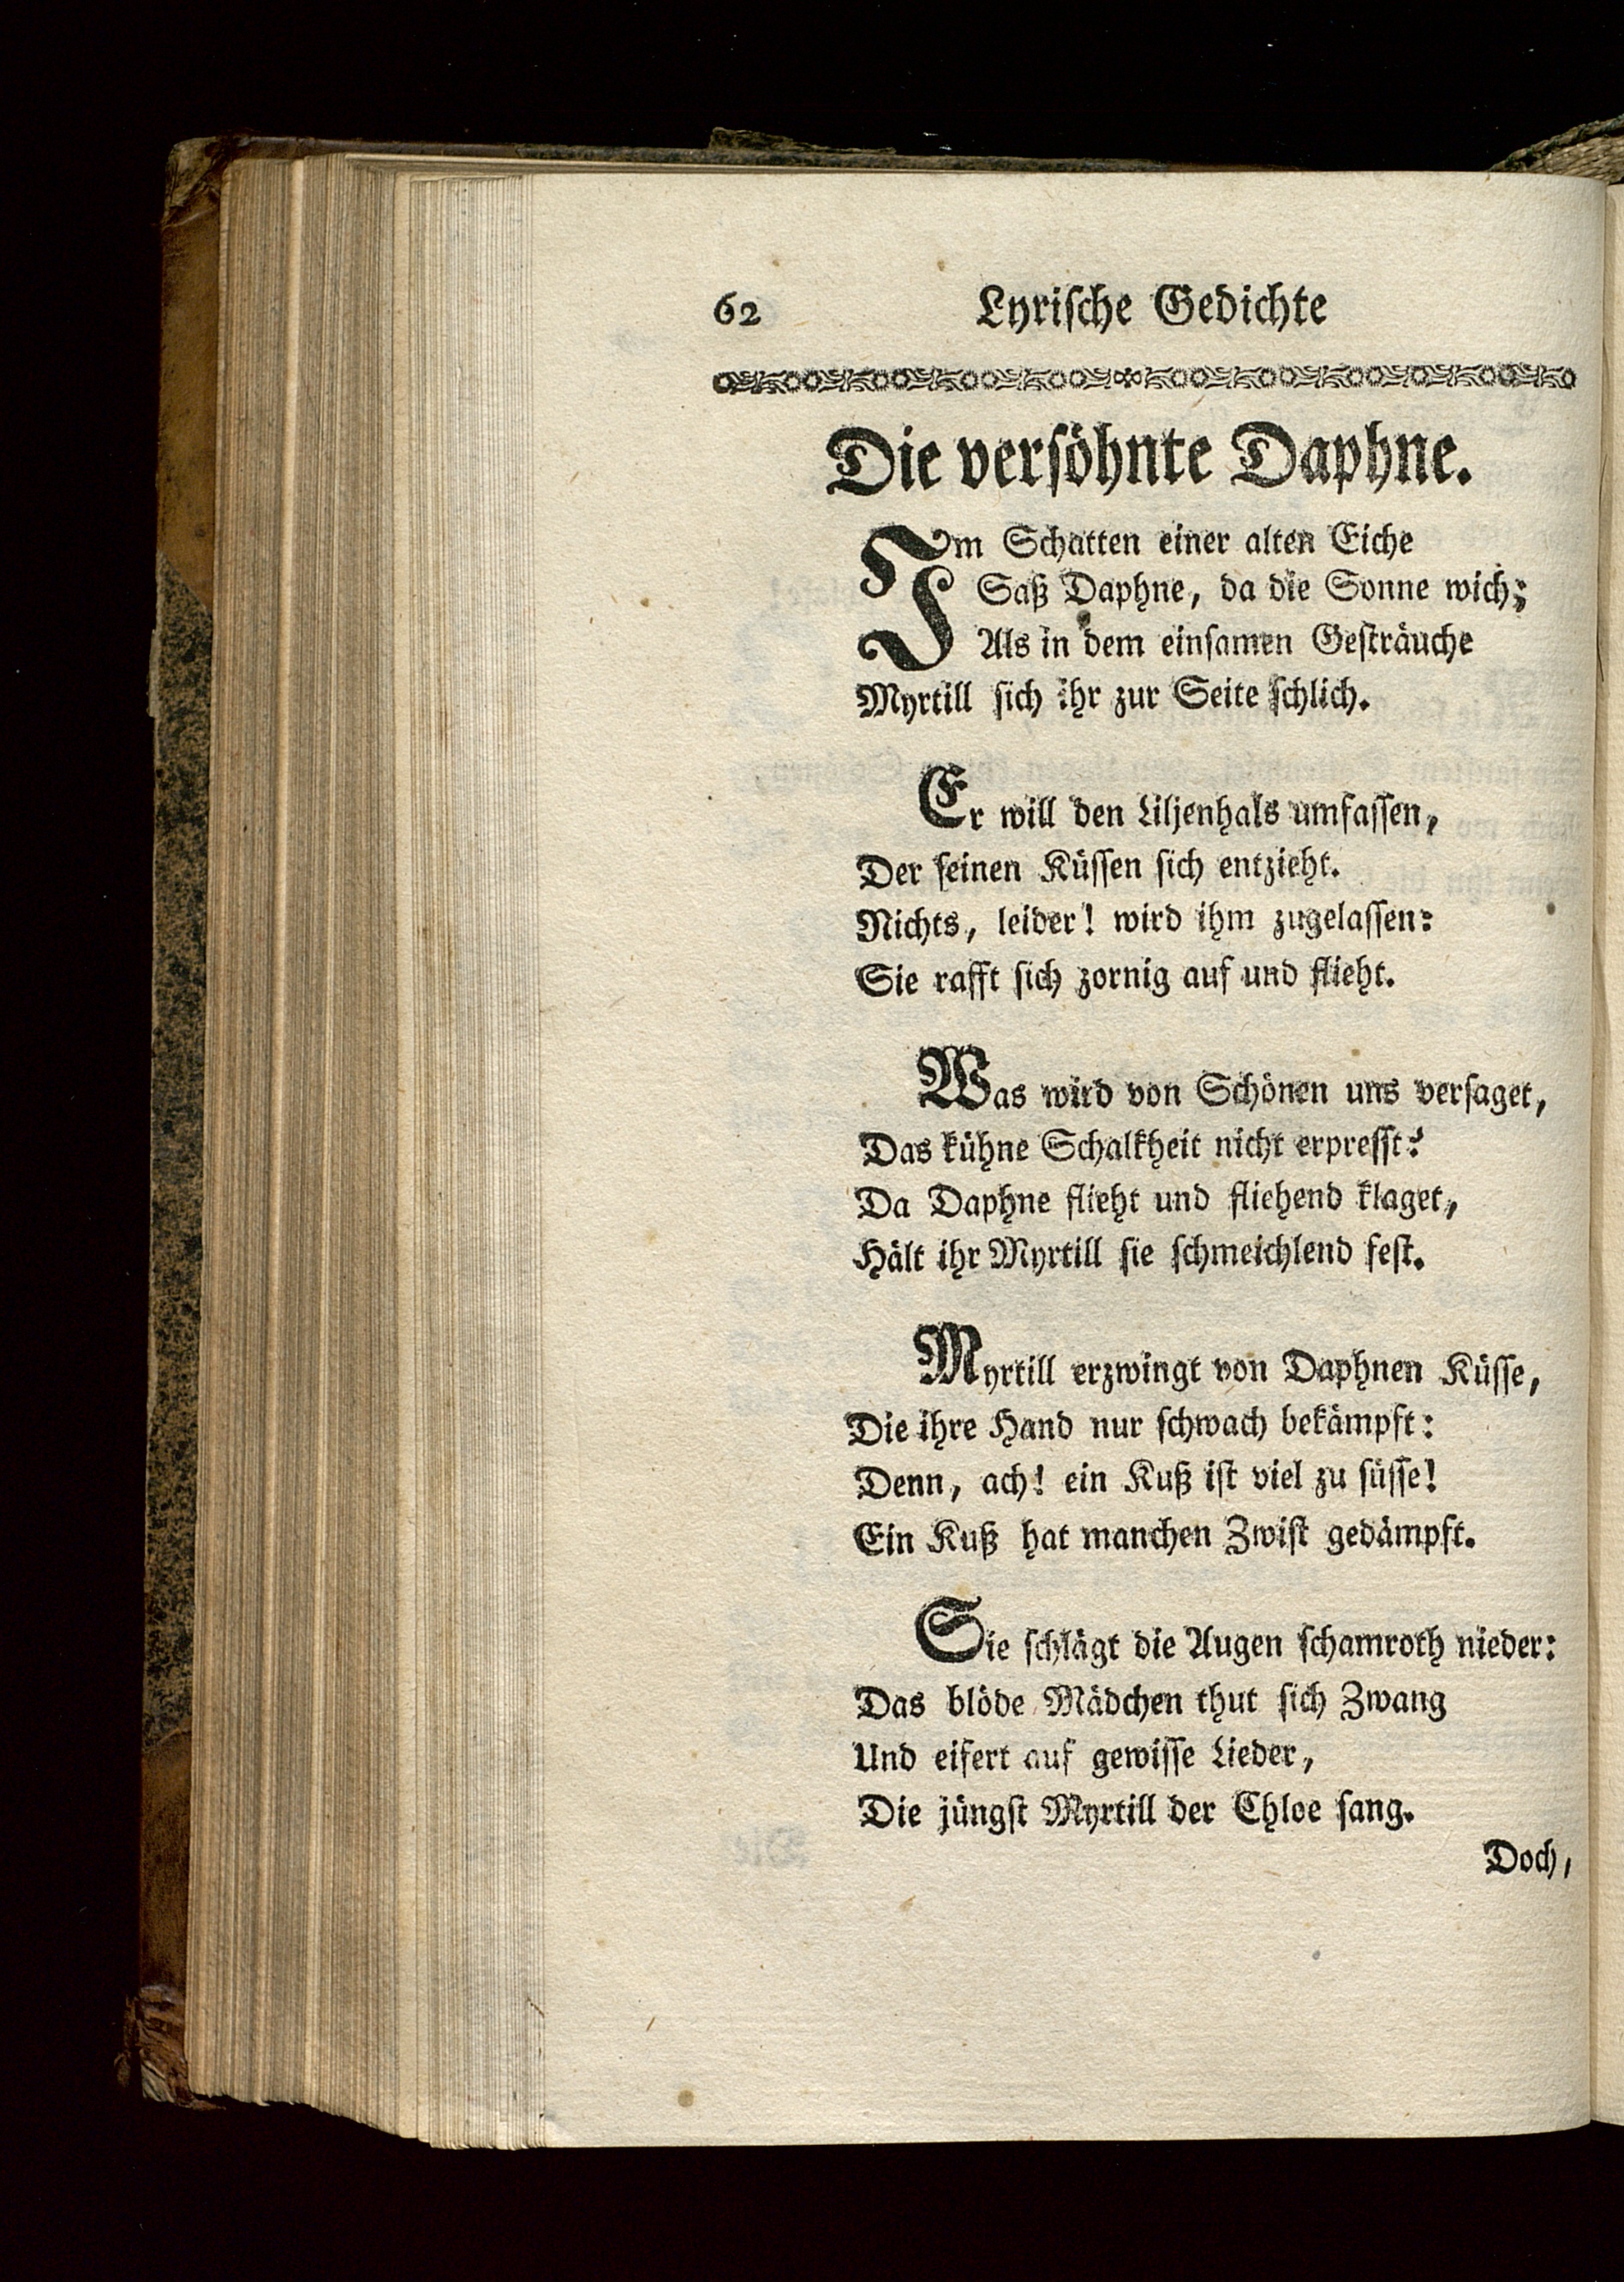 62 Lyrische Gedichte
Die versöhnte Daphne.
Im Schatten einer alten Eiche
Saß Daphne, da die Sonne wich;
Als in dem einsamen Gesträuche
Myrtill sich ihr zur Seite schlich.
Er will den Liljenhals umfassen,
Der seinen Küssen sich entzieht.
Nichts, leider! wird ihm zugelassen:
Sie rafft sich zornig auf und flieht.
Was wird von Schönen uns versaget,
Das kühne Schalkheit nicht erpresst?
Da Daphne flieht und fliehend klaget,
Hält ihr Myrtill sie schmeichlend fest.
Myrtill erzwingt von Daphnen Küsse,
Die ihre Hand nur schwach bekämpft:
Denn, ach! ein Kuß ist viel zu süsse!
Ein Kuß hat manchen Zwist gedämpft.
Sie schlägt die Augen schamroth nieder:
Das blöde Mädchen thut sich Zwang
Und eifert auf gewisse Lieder,
Die jüngst Myrtill der Chloe sang.
Doch,